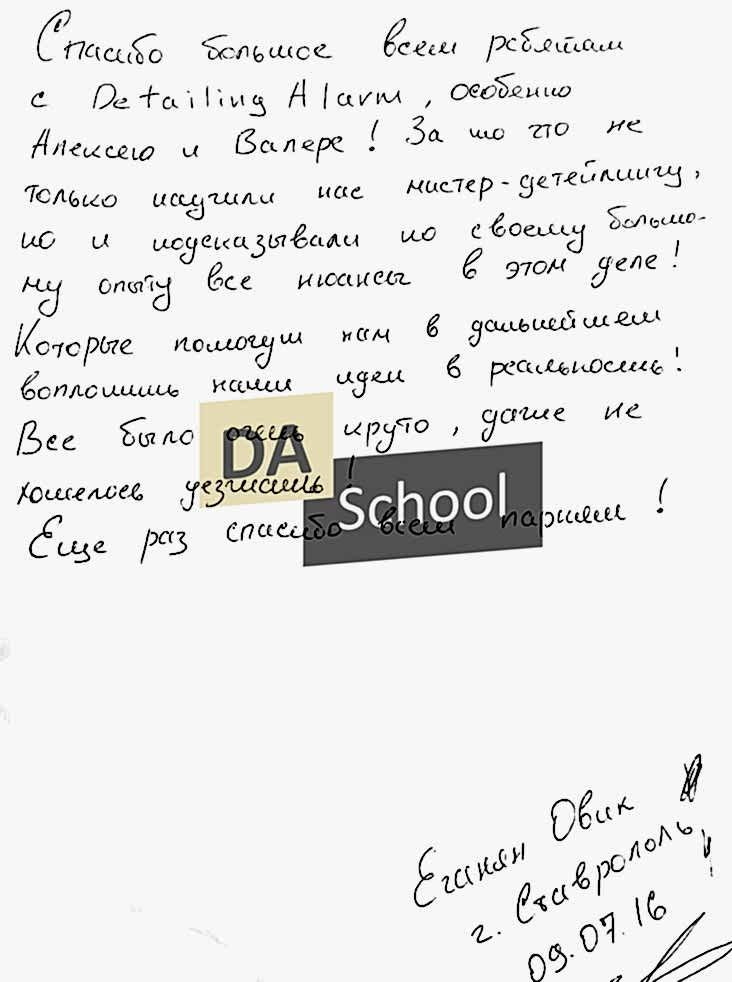 Спасибо большое всем ребятам
с Detailing Alarm, особенно
Алексею и Валере! За то что не
только научили нас мистер-детейлингу,
но и подсказывали по своему большо-
му опыту все нюансы в этом деле!
Которые помогут нам в дальнейшем
воплотить наши идеи в реальность!
Все было очень круто, даже не
хотелось уезжать!
Еще раз спасибо всем парням!
DA
School
Еганян Овик
г. Ставрополь!
09.07.16